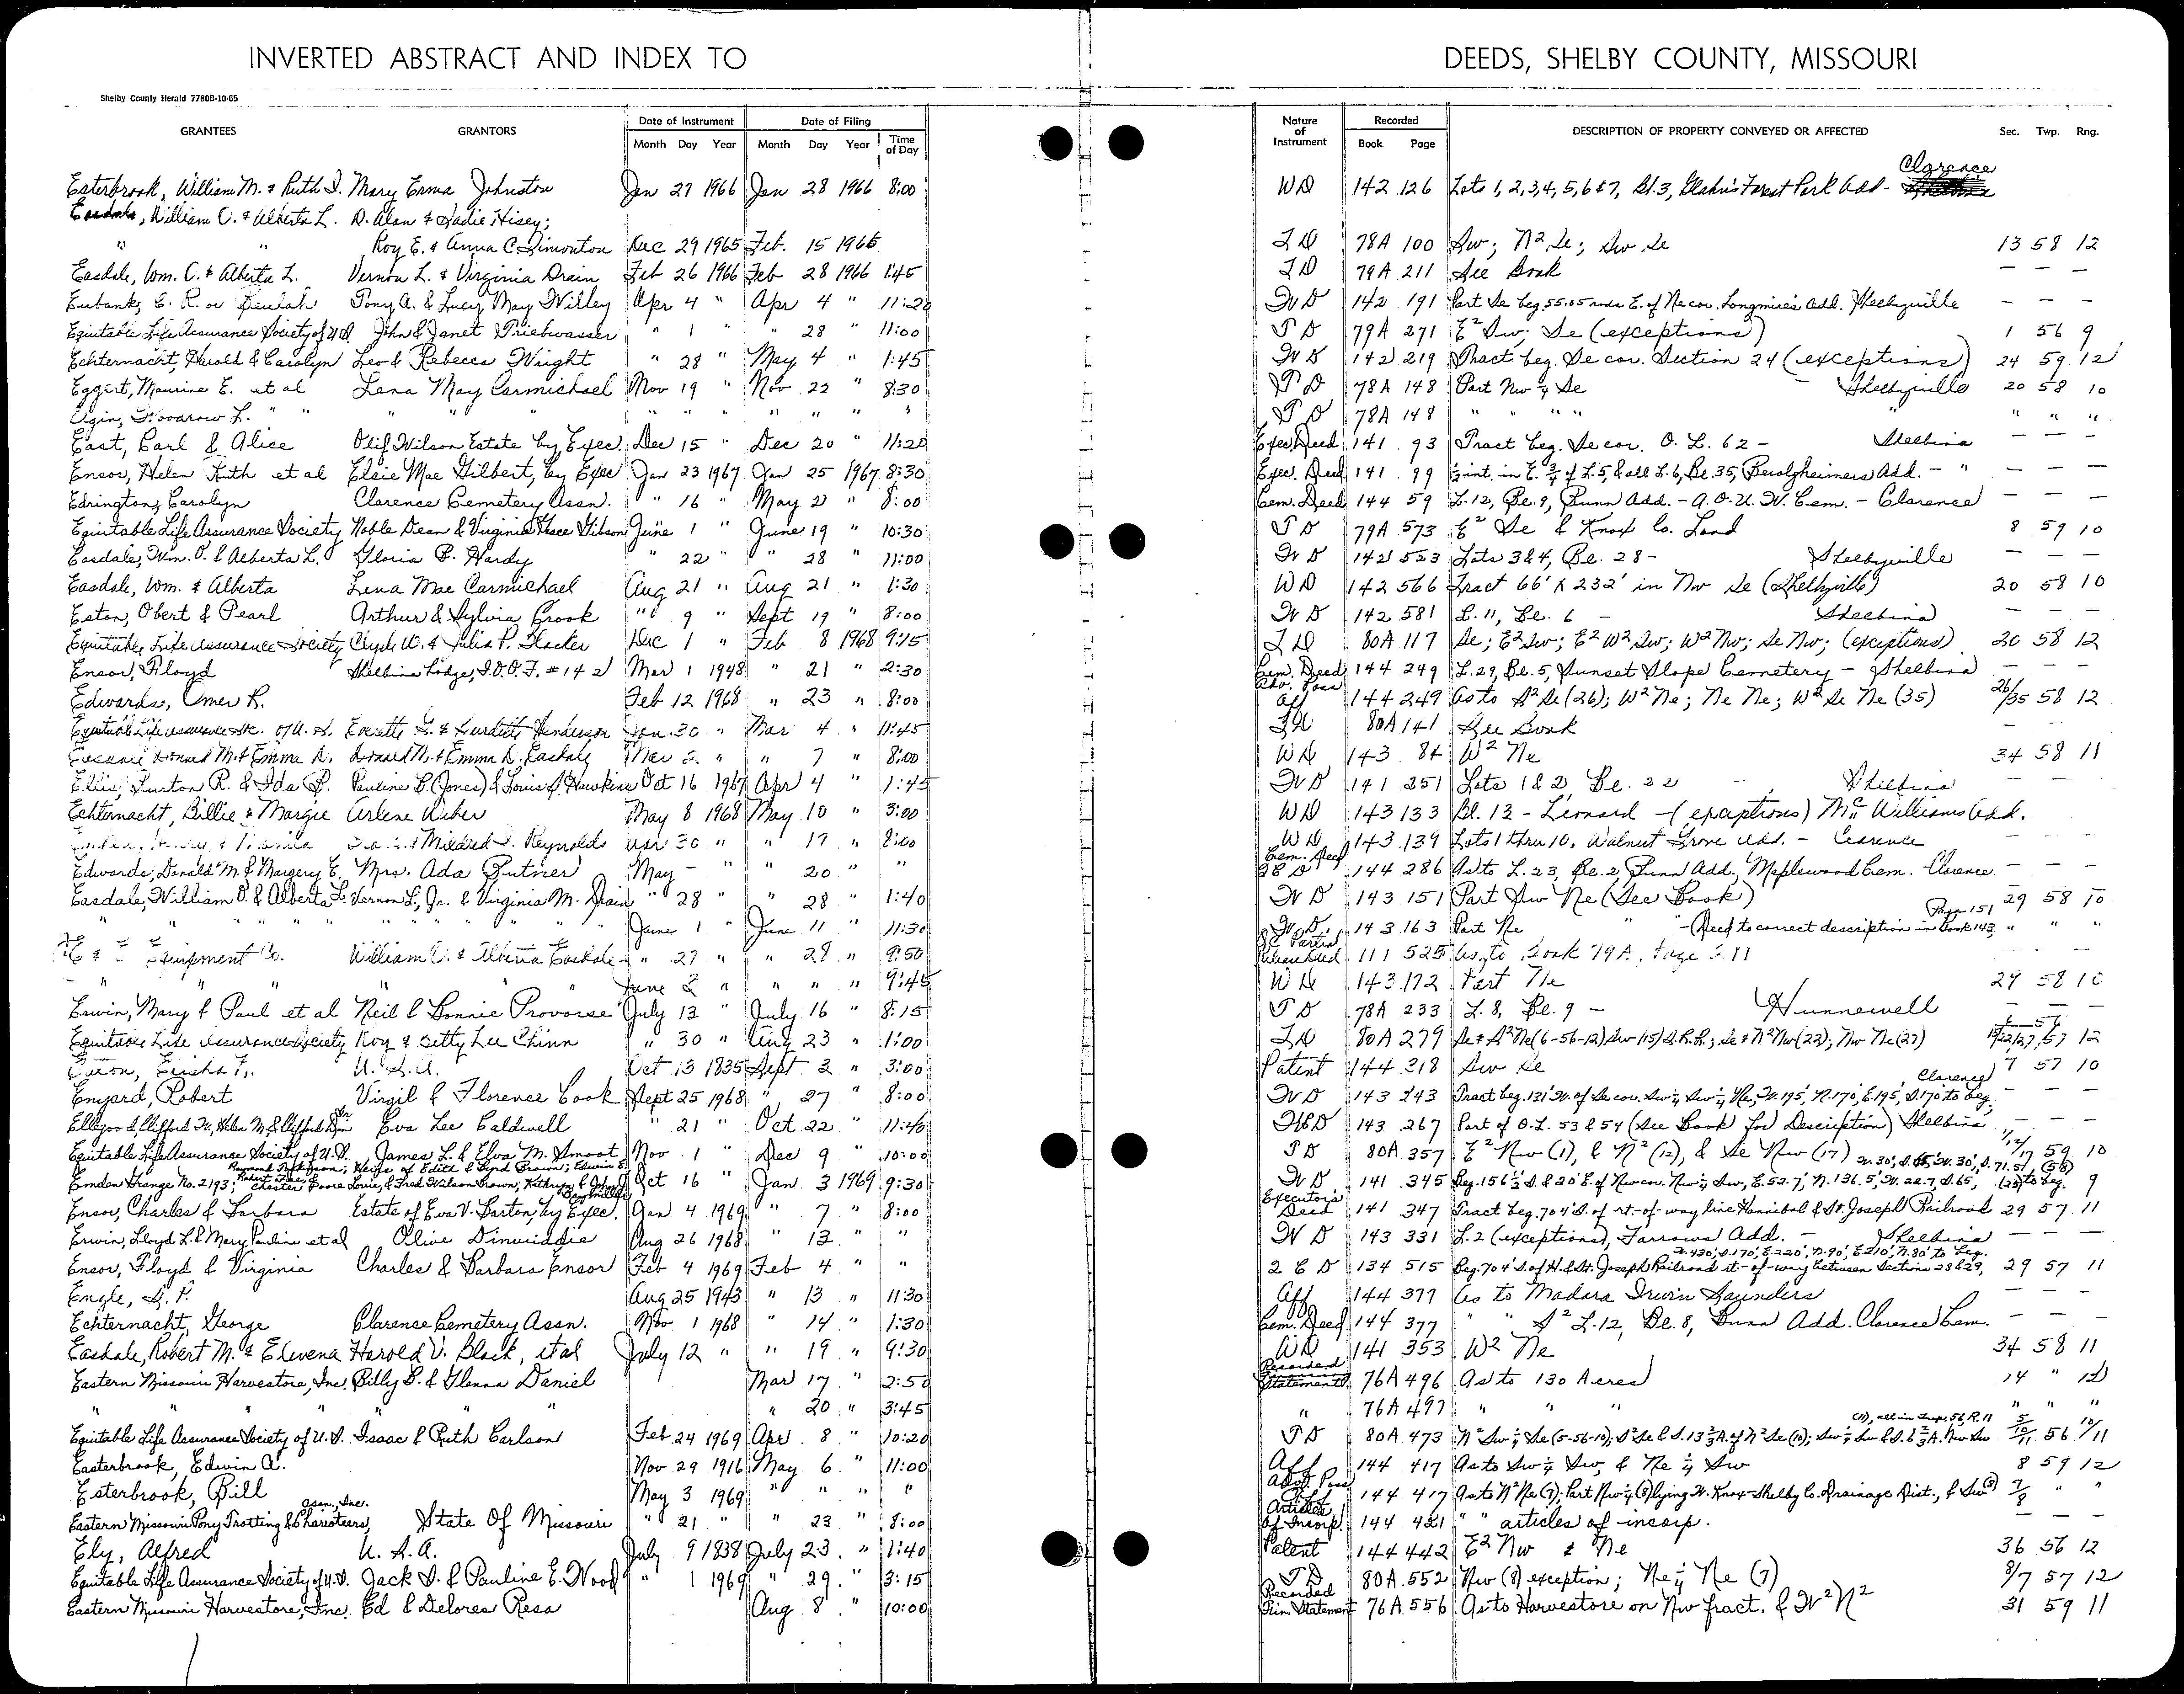 INVERTED ABSTRACT AND INDEX TO DEEDS, SHELBY COUNTY, MISSOURI
Shelby County Herald 7780B-10-65
GRANTEES GRANTORS Date of Instrument Month Day Year Date of Filing Month Day Year Time of Day Nature of Instrument Recorded Book Page DESCRIPTION OF PROPERTY CONVEYED OR AFFECTED Sec. Twp. Rng.
Esterbrook, William M. & Ruth I. Mary Erma Johnston Jan 27 1966 Jan 28 1966 8:00 WD 142 126 Lots 1, 2, 3, 4, 5, 6 & 7, Bl. 3, Forest Park Add - Clarence
Easdale, William O. & Alberta L. D. Alan & Sadie Hisey;
" " Roy E. & Anna C. Simonton Dec 29 1965 Feb. 15 1966 TD 78A 100 Sw; N² Se; Sw Se 13 58 12
Easdale, Wm. O. & Alberta L. Vernon L. & Virginia Drain Feb 26 1966 Feb 28 1966 1:45 TD 79A 211 See Book — — —
Eubank, E. R. or Beulah Tony A. & Lucy May Willey Apr 4 " Apr 4 " 11:20 WD 142 191 Part Se beg. 55.05 rods E. of Ne cor. Longmire's Add. Shelbyville — — —
Equitable Life Assurance Society of U.S. John & Janet Triebwasser " 1 " " 28 " 11:00 TD 79A 271 E² Sw; Se (exceptions) 1 56 9
Echternacht, Harold & Carolyn Leo & Rebecca Wright " 28 " May 4 " 1:45 WD 142 219 Tract beg. Se cor. Section 24 (exceptions) 24 59 12
Eggert, Maurine E. et al Lena May Carmichael Mov 19 " Nov 22 " 8:30 TD 78A 148 Part Nw ¼ Se - Shelbyville 20 58 10
Elgin, Woodrow L. " " " " " " " " " " " " " TD 78A 148 " " " " " " " "
East, Earl & Alice Olif Wilson Estate by Exec. Dec 15 " Dec 20 " 11:20 Exec. Deed 141 93 Tract beg. Se cor. O. L. 62 - Shelbina — — —
Ensor, Helen Ruth et al Elsie Mae Gilbert, by Exec Jan 23 1967 Jan 25 1967 8:30 Exec. Deed 141 99 int. in E. ¾ of L. 5, & all L. 6, Bl. 35, Berolzheimers Add. - " — — —
Edrington, Carolyn Clarence Cemetery Assn. " 16 " May 2 " 8:00 Cem. Deed 144 59 L. 12, Bl. 9, Bunn Add. - A.O.U.W. Cem. - Clarence — — —
Equitable Life Assurance Society Noble Dean & Virginia Grace Gibson June 1 " June 19 " 10:30 TD 79A 573 E² Se & Knox Co. Land 8 59 10
Easdale, Wm. O. & Alberta L. Gloria B. Hardy " 22 " " 28 " 11:00 WD 142 523 Lots 3 & 4, Bl. 28 - Shelbyville — — —
Easdale, Wm. & Alberta Lena Mae Carmichael Aug 21 " Aug 21 " 1:30 WD 142 566 Tract 66' X 232' in Nw Se (Shelbyville) 20 58 10
Eston, Obert & Pearl Arthur & Sylvia Crook " 9 " Sept 19 " 8:00 WD 142 581 L. 11, Bl. 6 - Shelbina — — —
Equitable Life Assurance Society Clyde W. & Julia P. Hacker Dec 1 " Feb 8 1968 9:15 TD 80A 117 Se; E² Sw; E² W² Sw; W² Nw; Se Nw; (exceptions) 30 58 12
Ensor, Floyd Shelbina Lodge, I.O.O.F. #142 Mar 1 1948 " 21 " 2:30 Cem. Deed 144 249 L. 29, Bl. 5, Sunset Slope Cemetery - Shelbina — — —
Edwards, Omer R. Feb 12 1968 " 23 " 8:00 Adv. Poss Aff 144 249 As to S² Se (26); W² Ne; Ne Ne; W² Se Ne (35) 26/35 58 12
Equitable Life Assurance Soc. of U.S. Everette G. & Henderson Jan. 30 " Mar 4 " 11:45 TD 80A 141 See Book — —
Easdale Donald M. & Emma D. Donald M. & Emma D. Easdale Mar 2 " " 7 " 8:00 WD 143 84 W² Ne 34 58 11
Ellis, Burton R. & Ida B. Pauline B. (Jones) & Louis A. Hawkins Oct 16 1967 Apr 4 " 1:45 WD 141 251 Lots 1 & 2, Bl. 22 - Shelbina — — —
Echternacht, Billie & Margie Arlene Weber May 8 1968 May 10 " 3:00 WD 143 133 Bl. 12 - Leonard - (exceptions) McWilliams Add.
Mildred I. Reynolds Apr 30 " " 17 " 8:00 WD 143 139 Lots 1 thru 10, Walnut Grove Add. - Clarence
Edwards, Donald M. & Margery E. Mrs. Ada Putner May - " " 20 " " Cem. Deed 144 286 As to L. 23, Bl. 2, Bunn Add, Maplewood Cem. Clarence — — —
Easdale, William O. & Alberta L. Vernon L., Jr. & Virginia M. Drain " 28 " " 28 " 1:40 WD 143 151 Part Sw Ne (See Book) 29 58 10
" " " " " " June 1 " June 11 " 11:30 WD 143 163 Part Ne " " - (Deed to correct description in Book 143, Page 151 " " "
Equipment Co. William O. & Alberta Easdale " 27 " " 28 " 9:50 Partial Release Deed 111 525 As to Book 79A, Page 211
" " " " June 2 " " " " 9:45 WD 143 172 Part Ne 29 58 10
Erwin, Mary & Paul et al Neil & Bonnie Provorse July 13 " July 16 " 8:15 TD 78A 233 L. 8, Bl. 9 - Hunnewell — — —
Equitable Life Assurance Society Roy & Betty Lee Chinn " 30 " Aug 23 " 1:00 TD 80A 279 Se & S² Ne (6-56-12) Sw (15) S.R.R.; Se & N² Nw (22); Nw Ne (27) 15/22/27 57 12
Elisha U.S.A. Oct 13 1835 Sept 3 " 3:00 Patent 144 318 Sw Se 7 57 10
Enyard, Robert Virgil & Florence Cook Sept 25 1968 " 27 " 8:00 WD 143 243 Tract beg. 131' W. of Se cor. Sw ¼ Sw ¼ Ne, W. 195', N. 170', E. 195', S. 170' to beg, Clarence — — —
Eva Lee Caldwell " 21 " Oct 22 " 11:40 WD 143 267 Part of O.L. 53 & 54 (See Book for Description) Shelbina — — —
Equitable Life Assurance Society of U.S. James L. & Elva M. Smoot Nov 1 " Dec 9 " 10:00 TD 80A 357 E² Nw (1), & N² (12), & Se Nw (17) 1/12/17 59 10
Emden Grange No. 2193; Heirs of Edith & Byrd Brown; Edwin E. Oct 16 " Jan. 3 1969 9:30 WD 141 345 Beg. 156½' S. & 20' E. of Nw cor. Nw ¼ Sw, E. 52.7', N. 136.5', W. 22.7', S. 65', W. 30', S. 71.5' to beg. 9
Ensor, Charles & Barbara Estate of Eva V. Barton, by Exec. Jan 4 1969 " 7 " 8:00 Executor's Deed 141 347 Tract beg. 704' S. of rt.-of-way line Hannibal & St. Joseph Railroad 29 57 11
Erwin, Lloyd L. & Mary Pauline et al Olive Dinwiddie Aug 26 1968 " 13 " " WD 143 331 L. 2 (exceptions), Farrows Add. - Shelbina — — —
Ensor, Floyd & Virginia Charles & Barbara Ensor Feb 4 1969 Feb 4 " " 2CD 134 515 Beg. 704' S. of H. & St. Joseph Railroad rt.-of-way between Section 28 & 29, W. 430', S. 170', E. 220', N. 90', E. 210', N. 80' to beg. 29 57 11
Engle, S. P. Aug 25 1943 " 13 " 11:30 Aff 144 377 As to Madara Irwin Saunders
Echternacht, George Clarence Cemetery Assn. Nov 1 1968 " 14 " 1:30 Cem. Deed 144 377 " " S² L. 12, Bl. 8, Bunn Add. Clarence Cem. — — —
Easdale, Robert M. & Elwena Harold V. Black, et al July 12 " " 19 " 9:30 WD 141 353 W² Ne 34 58 11
Eastern Missouri Harvestore, Inc. Billy B. & Glenna Daniel Mar 17 " 2:50 Recorded Statement 76A 496 As to 130 Acres 14 " 12
" " " " " " " 20 " 3:45 " 76A 497 " " " " " "
Equitable Life Assurance Society of U.S. Isaac & Ruth Carlson Feb 24 1969 Apr. 8 " 10:20 TD 80A 473 N² Sw ¼ Se (5-56-10); S² Se & S. 13⅔ A. of N² Se (10); Sw ¼ Sw & S. 6⅔ A. Nw Sw (11), all in Twp. 56, R. 11 5/10/11 56 10/11
Easterbrook, Edwin A. Nov 29 1916 May 6 " 11:00 Aff 144 417 As to Sw ¼ Sw, & Ne ¼ Sw 8 59 12
Esterbrook, Bill May 3 1969 " " " " Adv. Poss Aff 144 417 As to N² Ne (7); Part Nw ¼ (8) lying W. Knox-Shelby Co. Drainage Dist., & Sw (8) 7/8 " "
Eastern Missouri Pony Trotting & Charioteers, Assn., Inc. State Of Missouri " 21 " " 23 " 8:00 Articles of Incorp. 144 421 " " articles of incorp. — — —
Ely, Alfred U.S.A. July 9 1838 July 23 " 1:40 Patent 144 442 E² Nw & Ne 36 56 12
Equitable Life Assurance Society of U.S. Jack S. & Pauline E. Wood " 1 1969 " 29 " 3:15 TD 80A 552 Nw (8) exception; Ne ¼ Ne (7) 8/7 57 12
Eastern Missouri Harvestore, Inc. Ed & Delores Resa Aug 8 " 10:00 Recorded Fin. Statement 76A 556 As to Harvestore on Nw fract. & W² N² 31 59 11